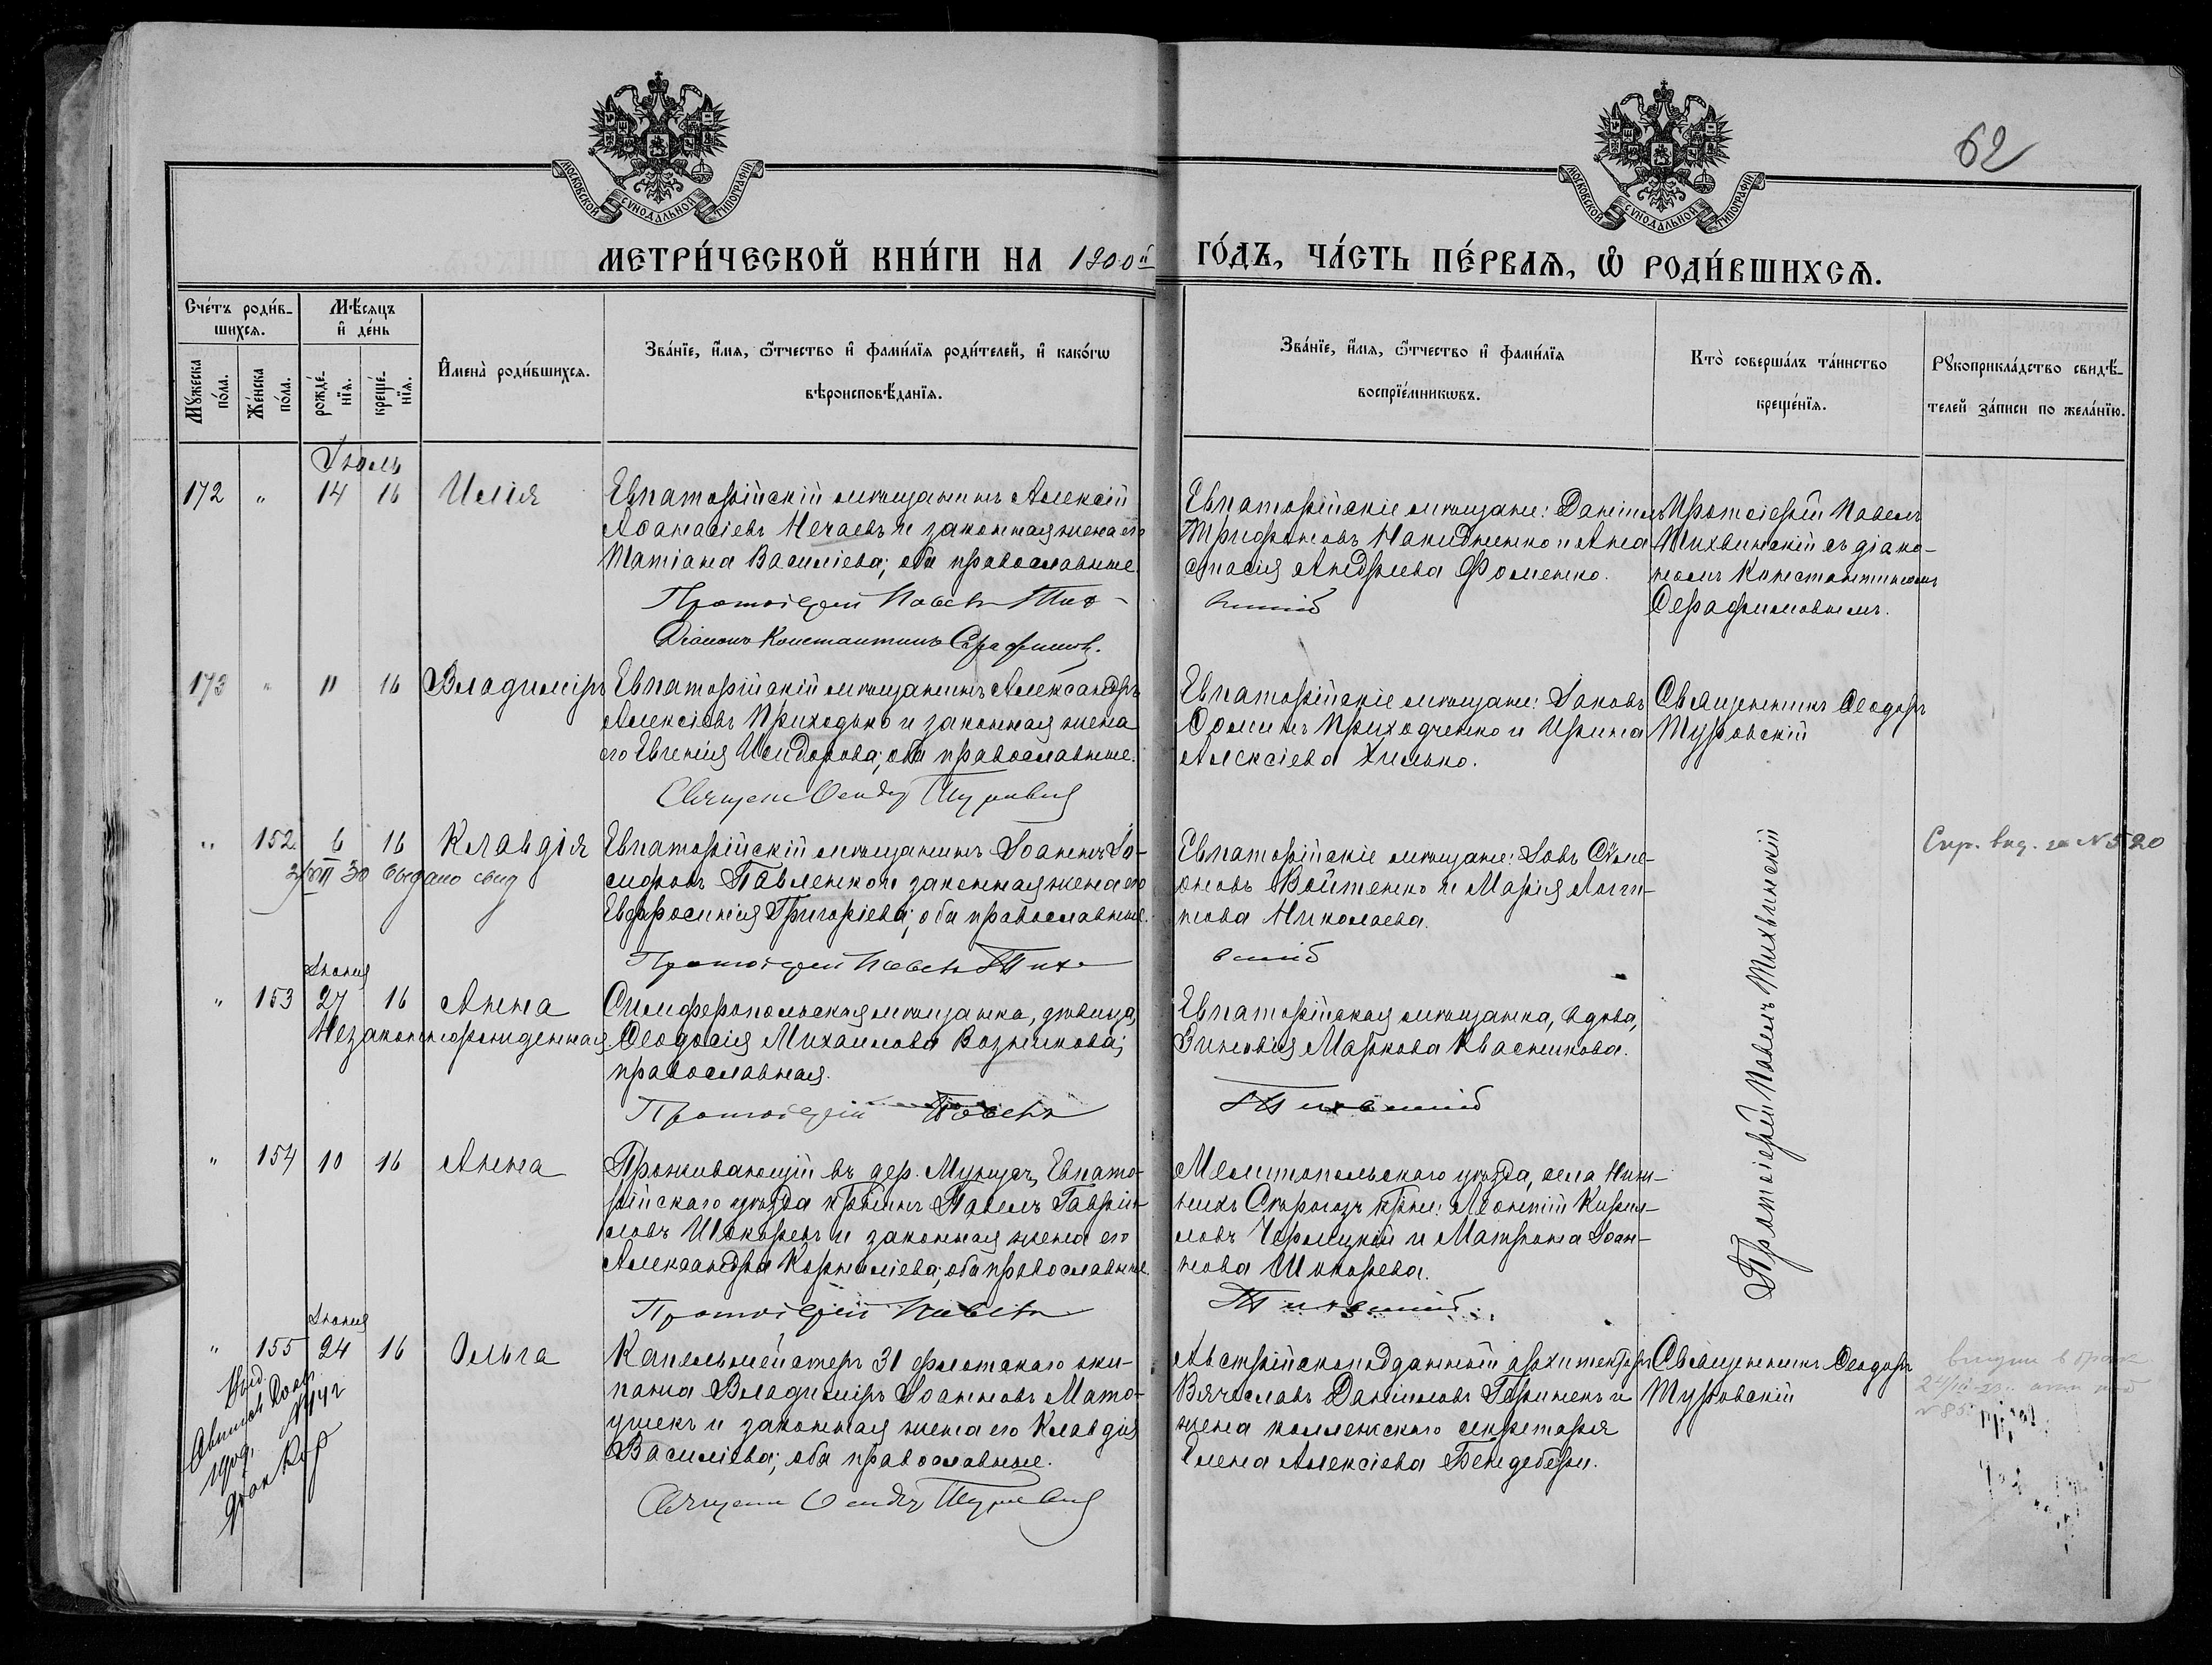 62
МОСКОВСКОЙ СѴНОДАЛЬНОЙ ТИПОГРАФІИ
МОСКОВСКОЙ СѴНОДАЛЬНОЙ ТИПОГРАФІИ
МЕТРИ́ЧЕСКОЙ КНИ́ГИ НА 1900й ГО́ДЪ, ЧА́СТЬ ПЕ́РВАѦ, Ѽ РОДИ́ВШИХСѦ.
Сче́тъ роди́в-
шихсѧ.
Мꙋ́жеска по́ла.
Же́нска по́ла.
Мѣ́сѧцъ
и҆ де́нь
рожде́-
нїѧ.
креще́-
нїѧ.
И҆мена̀ роди́вшихсѧ.
Зва́нїе, и҆́мѧ, ѻ҆́тчество и҆ фами́лїѧ роди́телей, и҆ како́гѡ
вѣроисповѣ́данїѧ.
Зва́нїе, и҆́мѧ, ѻ҆́тчество и҆ фами́лїѧ
воспрїе́мникѡвъ.
Кто̀ соверша́лъ та́инство
креще́нїѧ.
Рꙋкоприкла́дство свидѣ́-
телей за́писи по жела́нїю.
Іюль
172 " 14 16 Илія
Евпаторійскій мѣщанинъ Алексій
Аѳанасіевъ Нечаевъ и законная жена его
Татіана Василіева; оба православные.
Протоіерей Павелъ Тих-
Діаконъ Константинъ Серафимов.
Евпаторійскіе мѣщане: Даніилъ
Трифоновъ Накидненко и Ана-
стасія Андреева Фоменко.
винскій
Протоіерей Павелъ
Тихвинскій съ діако-
номъ Константиномъ
Серафимовымъ.
173 " 11 16 Владиміръ
Евпаторійскій мѣщанинъ Александръ
Алексіевъ Приходько и законная жена
его Евгенія Исидорова; оба православные.
Священ Ѳеодор Туровскій
Евпаторійскіе мѣщане: Іаковъ
Ѳоминъ Приходченко и Ирина
Алексіева Хилько.
Священникъ Ѳеодоръ
Туровскій
" 152 6 16 Клавдія
30 выдано свид
Евпаторійскій мѣщанинъ Іоаннъ Іо-
сифовъ Павленко и законная жена его
Евфросинія Григоріева; оба православные.
Протоіерей Павелъ Тих-
Евпаторійскіе мѣщане: Іовъ Симе-
оновъ Войтенко и Марія Логги-
нова Николаева.
винскій
Протоіерей Павелъ Тихвинскій
Спр. выд. за № 520
Іюня
" 153 27 16 Анна
Незаконнорожденная
Симферопольская мѣщанка, дѣвица,
Ѳеодосія Михаилова Возникова;
православная.
Протоіерей Павелъ
Евпаторійская мѣщанка, вдова,
Зиновія Маркова Квасникова.
Тихвинскій
" 154 10 16 Анна
Проживающій въ дер. Мунусъ, Евпато-
рійскаго уѣзда кр-нинъ Павелъ Гавріи-
ловъ Шокоревъ и законная жена его
Александра Корниліева; оба православные.
Протоіерей Павелъ
Мелитопольскаго уѣзда, села Ниж-
нихъ Сѣрогозъ кр-не: Леонтій Кирил-
ловъ и Матрона Іоан-
нова Шокорева.
Тихвинскій
Іюня
" 155 24 16 Ольга
1909
Капельмейстеръ 31 флотскаго эки-
пажа Владиміръ Іоанновъ Мато-
ушекъ и законная жена его Клавдія
Василіева; оба православные.
Священ Ѳеодор Туровскій
Австрійскоподданный архитекторъ
Вячеславъ Даніиловъ Геринекъ и
жена коллежскаго секретаря
Елена Алексіева Бендебери.
Священникъ Ѳеодоръ
Туровскій